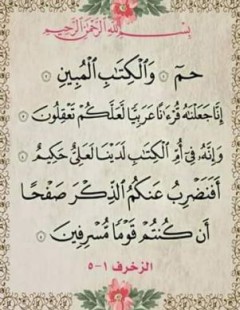 بِسْمِ اللَّهِ الرَّحْمَٰنِ الرَّحِيمِ
حمٓ ۝ وَالْكِتَابِ الْمُبِينِ ۝
إِنَّا جَعَلْنَاهُ قُرْءَانًا عَرَبِيًّا لَّعَلَّكُمْ تَعْقِلُونَ ۝
وَإِنَّهُ فِي أُمِّ الْكِتَابِ لَدَيْنَا لَعَلِيٌّ حَكِيمٌ ۝
أَفَنَضْرِبُ عَنكُمُ الذِّكْرَ صَفْحًا
أَن كُنتُمْ قَوْمًا مُّسْرِفِينَ ۝
الزخرف ١-٥